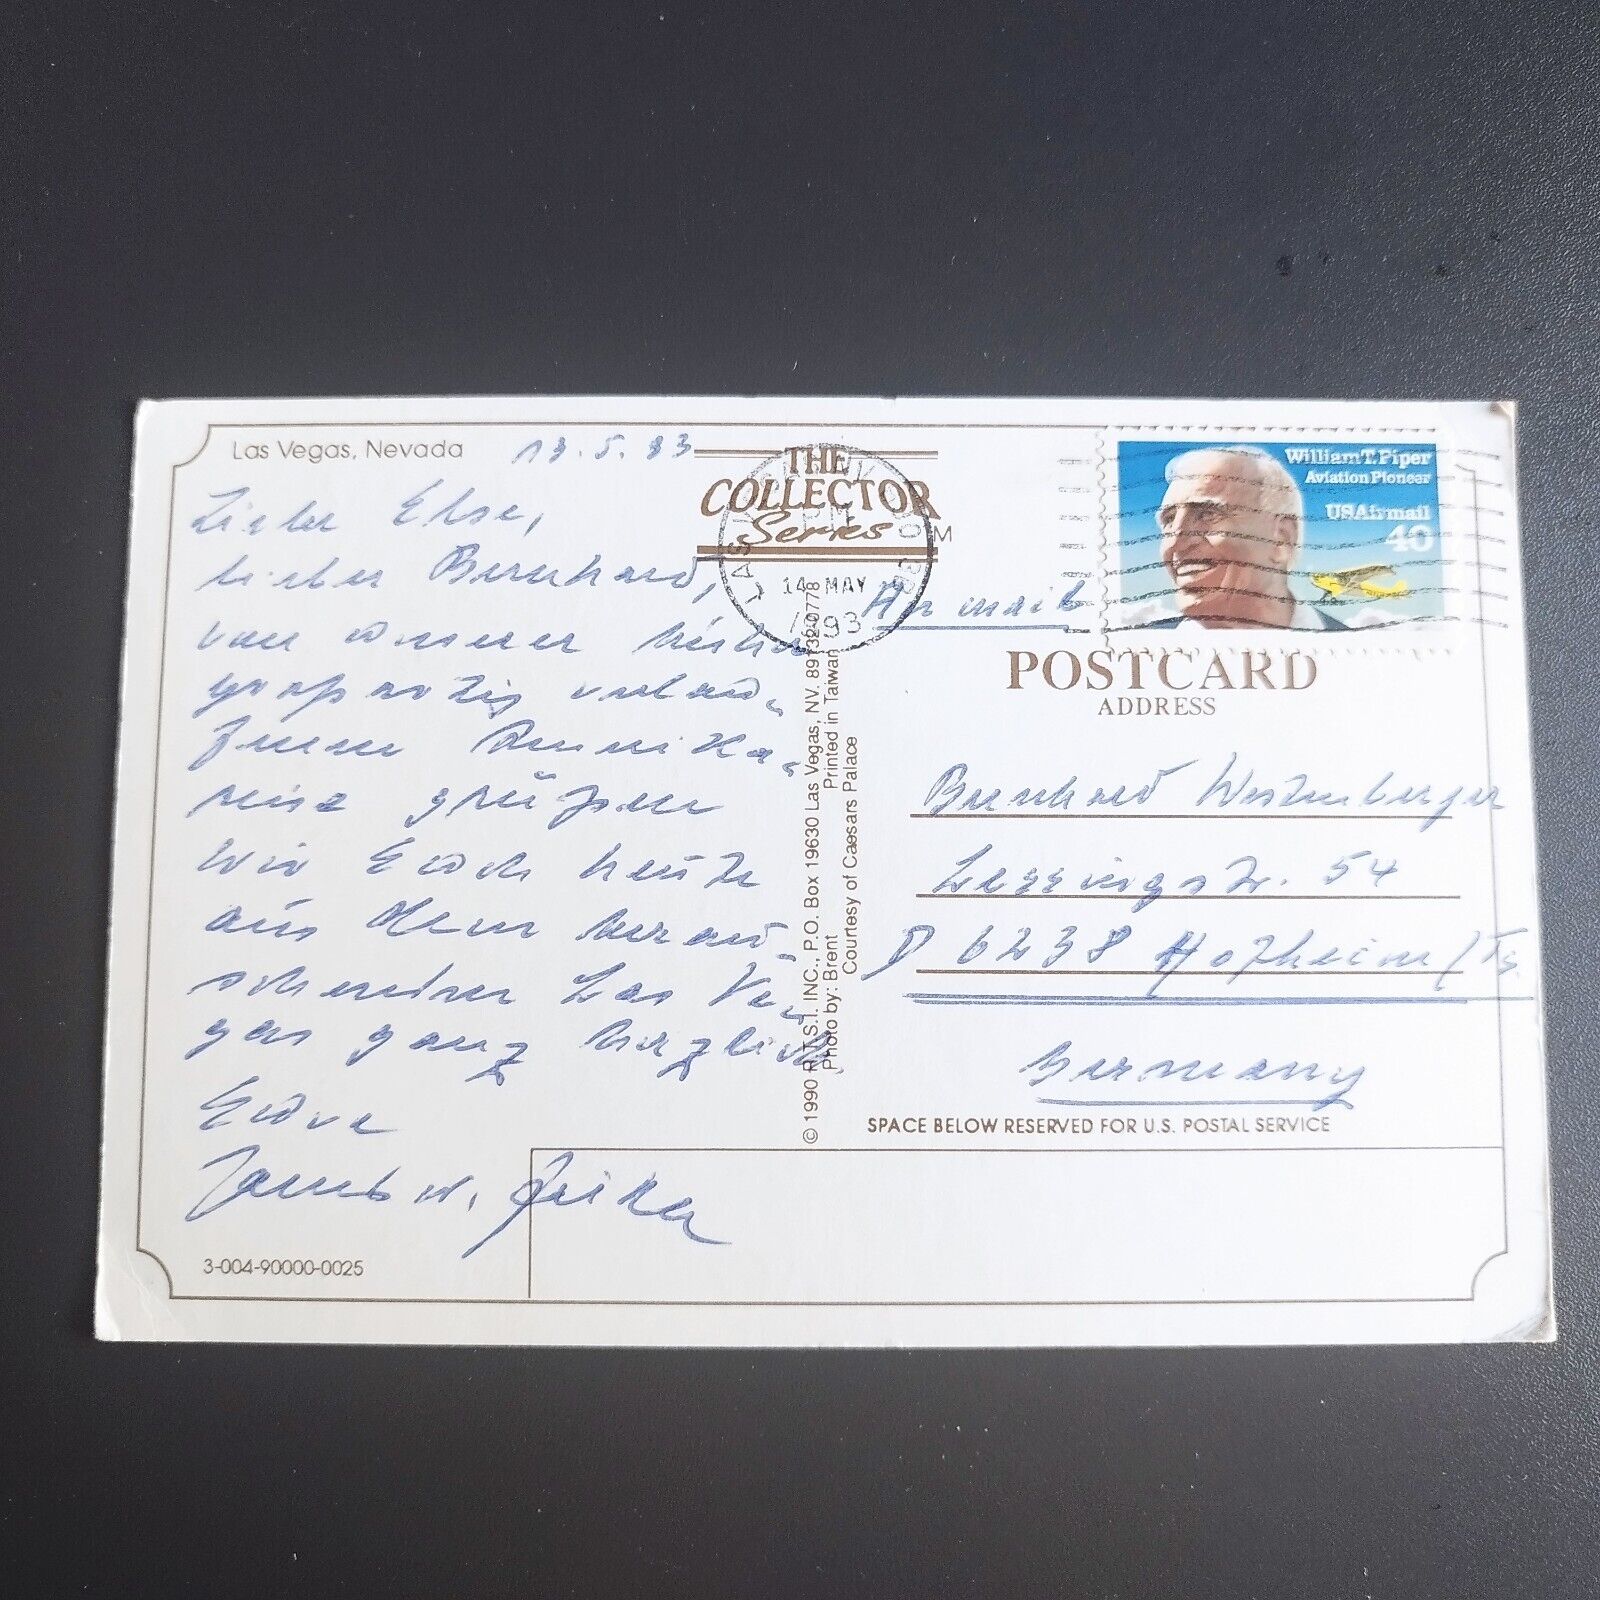 Las Vegas, Nevada
13.5.93
Liebe Else,
lieber Bernhard,
von unserer bisher
großartig verlau-
fenen Amerika-
reise grüßen
wir Euch heute
aus dem berau-
schenden Las Ve-
gas ganz herzlich
Eure
THE
COLLECTOR
Series
LAS VEGAS NV
PM
14 MAY
1993
© 1990 R.T.S.I. INC., P.O. Box 19630 Las Vegas, NV. 89132-0778
Photo by: Brent Printed in Taiwan
Courtesy of Caesars Palace
William T. Piper
Aviation Pioneer
USAirmail
40
Air mail
POSTCARD
ADDRESS
Bernhard Westenberger
Lessingstr. 54
D 6238 Hofheim/Ts.
Germany
SPACE BELOW RESERVED FOR U.S. POSTAL SERVICE
3-004-90000-0025